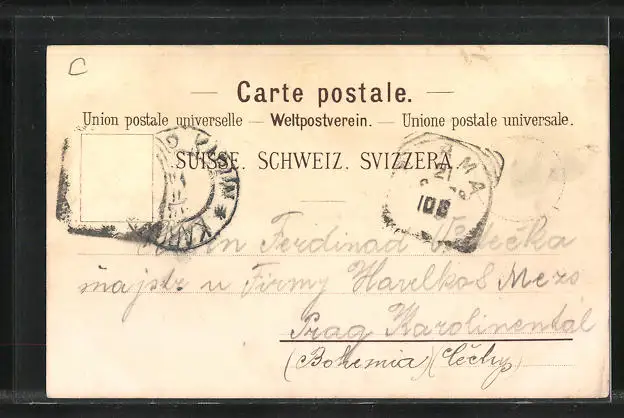 C
Carte postale.
Union postale universelle — Weltpostverein. — Unione postale universale.
SUISSE. SCHWEIZ. SVIZZERA.
KAROLIN
Ferdinad
majstr u Firmy Havelka & Mezo
Prag Karolinentál
(Bohemia) (Čechy)